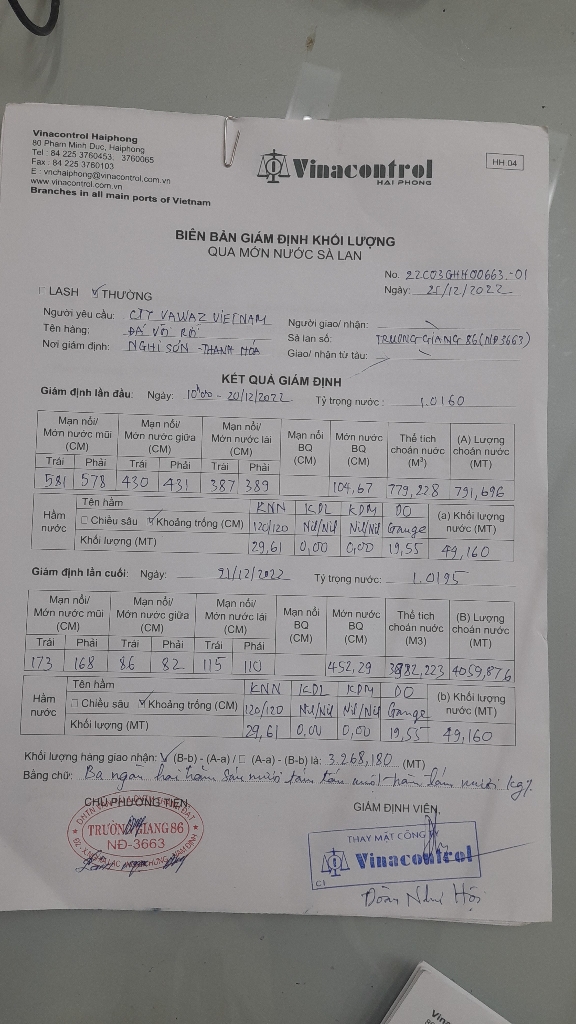 Vinacontrol Haiphong
80 Pham Minh Duc, Haiphong
Tel : 84 225 3760453, 3760065
Fax : 84 225 3760103
E : vnchaiphong@vinacontrol.com.vn
www.vinacontrol.com.vn
Branches in all main ports of Vietnam
Vinacontrol
HAI PHONG
HH 04
BIÊN BẢN GIÁM ĐỊNH KHỐI LƯỢNG
QUA MỚN NƯỚC SÀ LAN
No. 22C03GHH00663-01
Ngày: 21/12/2022
LASH THƯỜNG
Người yêu cầu: CTY VAWAZ VIETNAM
Người giao/ nhận:
Tên hàng: ĐÁ VÔI RỜI
Sà lan số: TRUONG GIANG 86 (NĐ3663)
Nơi giám định: NGHI SƠN - THANH HÓA
Giao/ nhận từ tàu:
KẾT QUẢ GIÁM ĐỊNH
Giám định lần đầu: Ngày: 10h00 - 20/12/2022 Tỷ trọng nước : 1.0160
Mạn nổi/ Mớn nước mũi (CM) Mạn nổi/ Mớn nước giữa (CM) Mạn nổi/ Mớn nước lái (CM) Mạn nổi BQ (CM) Mớn nước BQ (CM) Thể tích choán nước (M3) (A) Lượng choán nước (MT)
Trái Phải Trái Phải Trái Phải
581 578 430 431 387 389 104,67 779,228 791,696
Hầm nước Tên hầm KNN KDL KDM DO (a) Khối lượng nước (MT)
Chiều sâu Khoảng trống (CM) 120/120 Nil/Nil Nil/Nil Gauge
Khối lượng (MT) 29,61 0,00 0,00 19,55 49,160
Giám định lần cuối: Ngày: 21/12/2022 Tỷ trọng nước: 1.0195
Mạn nổi/ Mớn nước mũi (CM) Mạn nổi/ Mớn nước giữa (CM) Mạn nổi/ Mớn nước lái (CM) Mạn nổi BQ (CM) Mớn nước BQ (CM) Thể tích choán nước (M3) (B) Lượng choán nước (MT)
Trái Phải Trái Phải Trái Phải
173 168 86 82 115 110 452,29 3982,223 4059,876
Hầm nước Tên hầm KNN KDL KDM DO (b) Khối lượng nước (MT)
Chiều sâu Khoảng trống (CM) 120/120 Nil/Nil Nil/Nil Gauge
Khối lượng (MT) 29,61 0,00 0,00 19,55 49,160
Khối lượng hàng giao nhận: (B-b) - (A-a) / (A-a) - (B-b) là: 3.268,180 (MT)
Bằng chữ: Ba ngàn hai trăm sáu mươi tám tấn một trăm tám mươi kg/.
CHỦ PHƯƠNG TIỆN
GIÁM ĐỊNH VIÊN
TRƯỜNG GIANG 86
NĐ-3663
THAY MẶT CÔNG TY
Vinacontrol
C1
Đoàn Như Hội